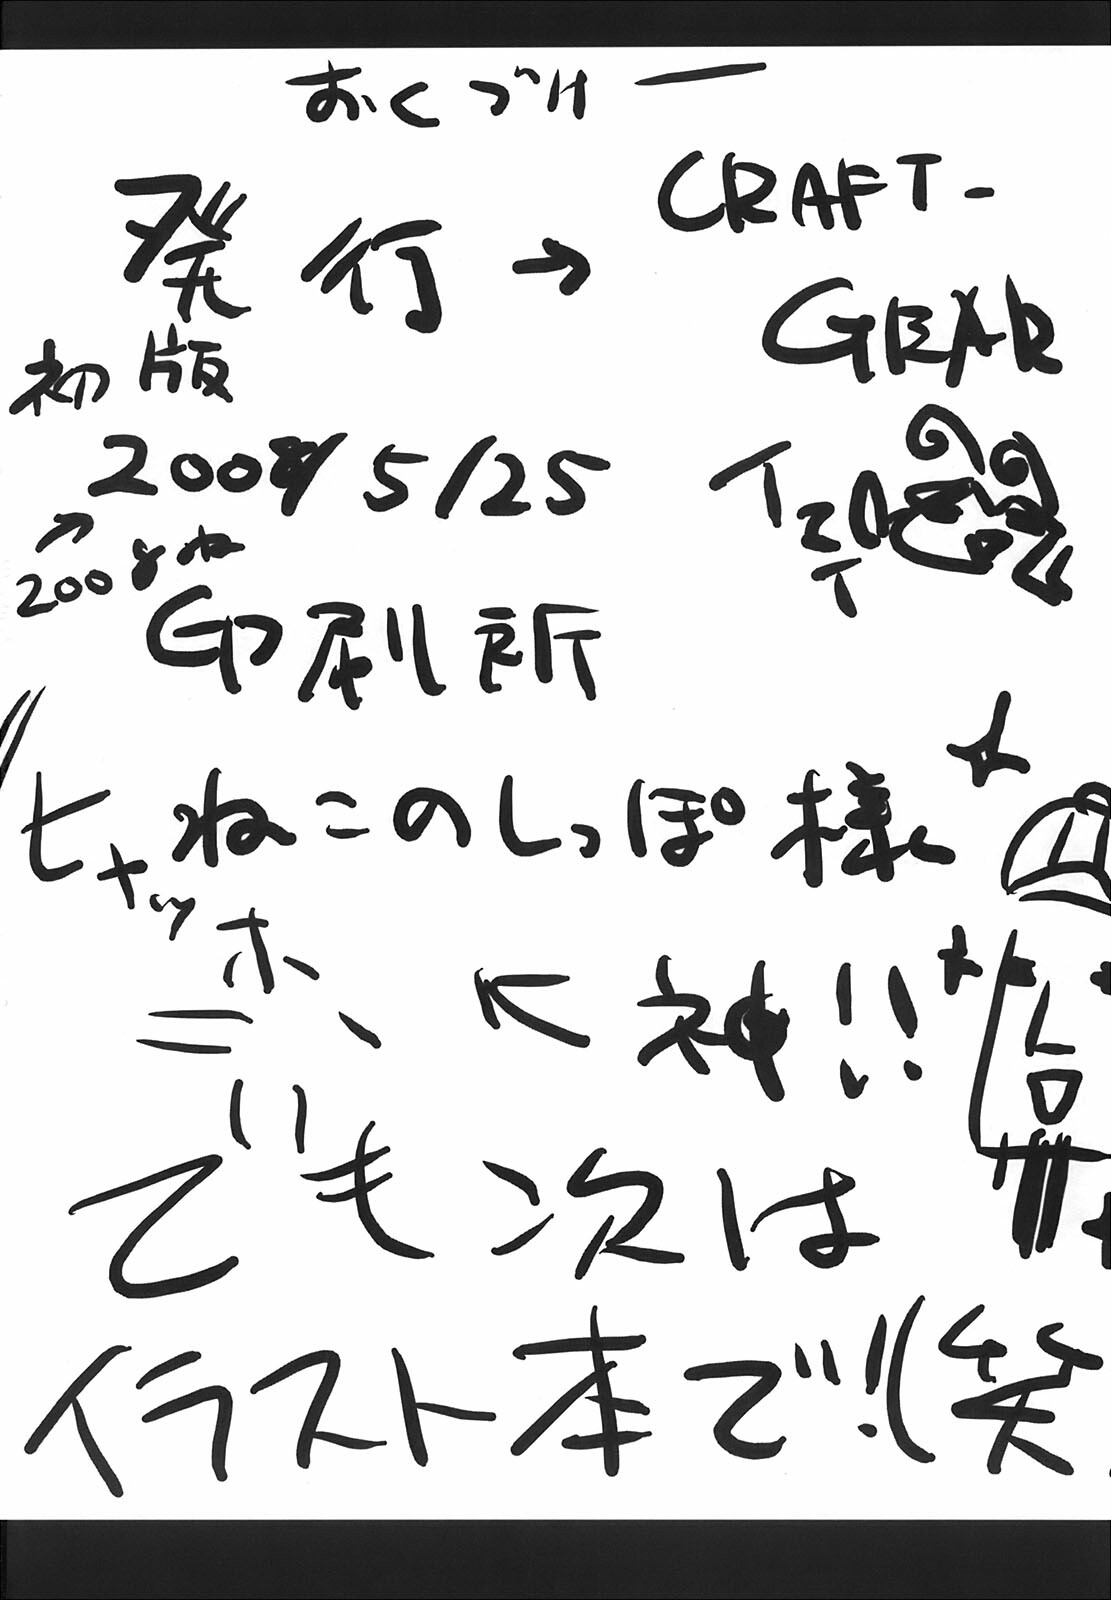 おくづけー
発行→CRAFT-
GEAR
初版
2008 5/25
↗
2008ね
印刷所
ねこのしっぽ様
ヒャッホー
← 神!!
でも次は
イラスト本で!!(笑